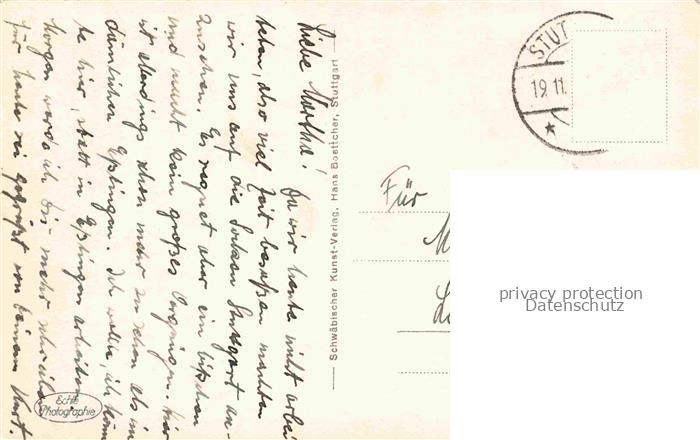 Liebe Martha! Da wir heute nicht arbei
teten, also viel Zeit besaßen machten
wir uns auf die Socken Stuttgart an-
zusehen. Es regnet aber ein bißchen
und macht kein großes Vergnügen. Hier
ist allerdings schon mehr zu sehen als im
Eßlingen. Ich wollte, ich könn
te hier, statt in Eßlingen arbeiten
Morgen werde ich Dir mehr schreiben
für heute sei gegrüßt von Deinem Kurt.
Echte
Photographie
Schwäbischer Kunst-Verlag, Hans Boettcher, Stuttgart
STUT
19.11.
Für
privacy protection
Datenschutz